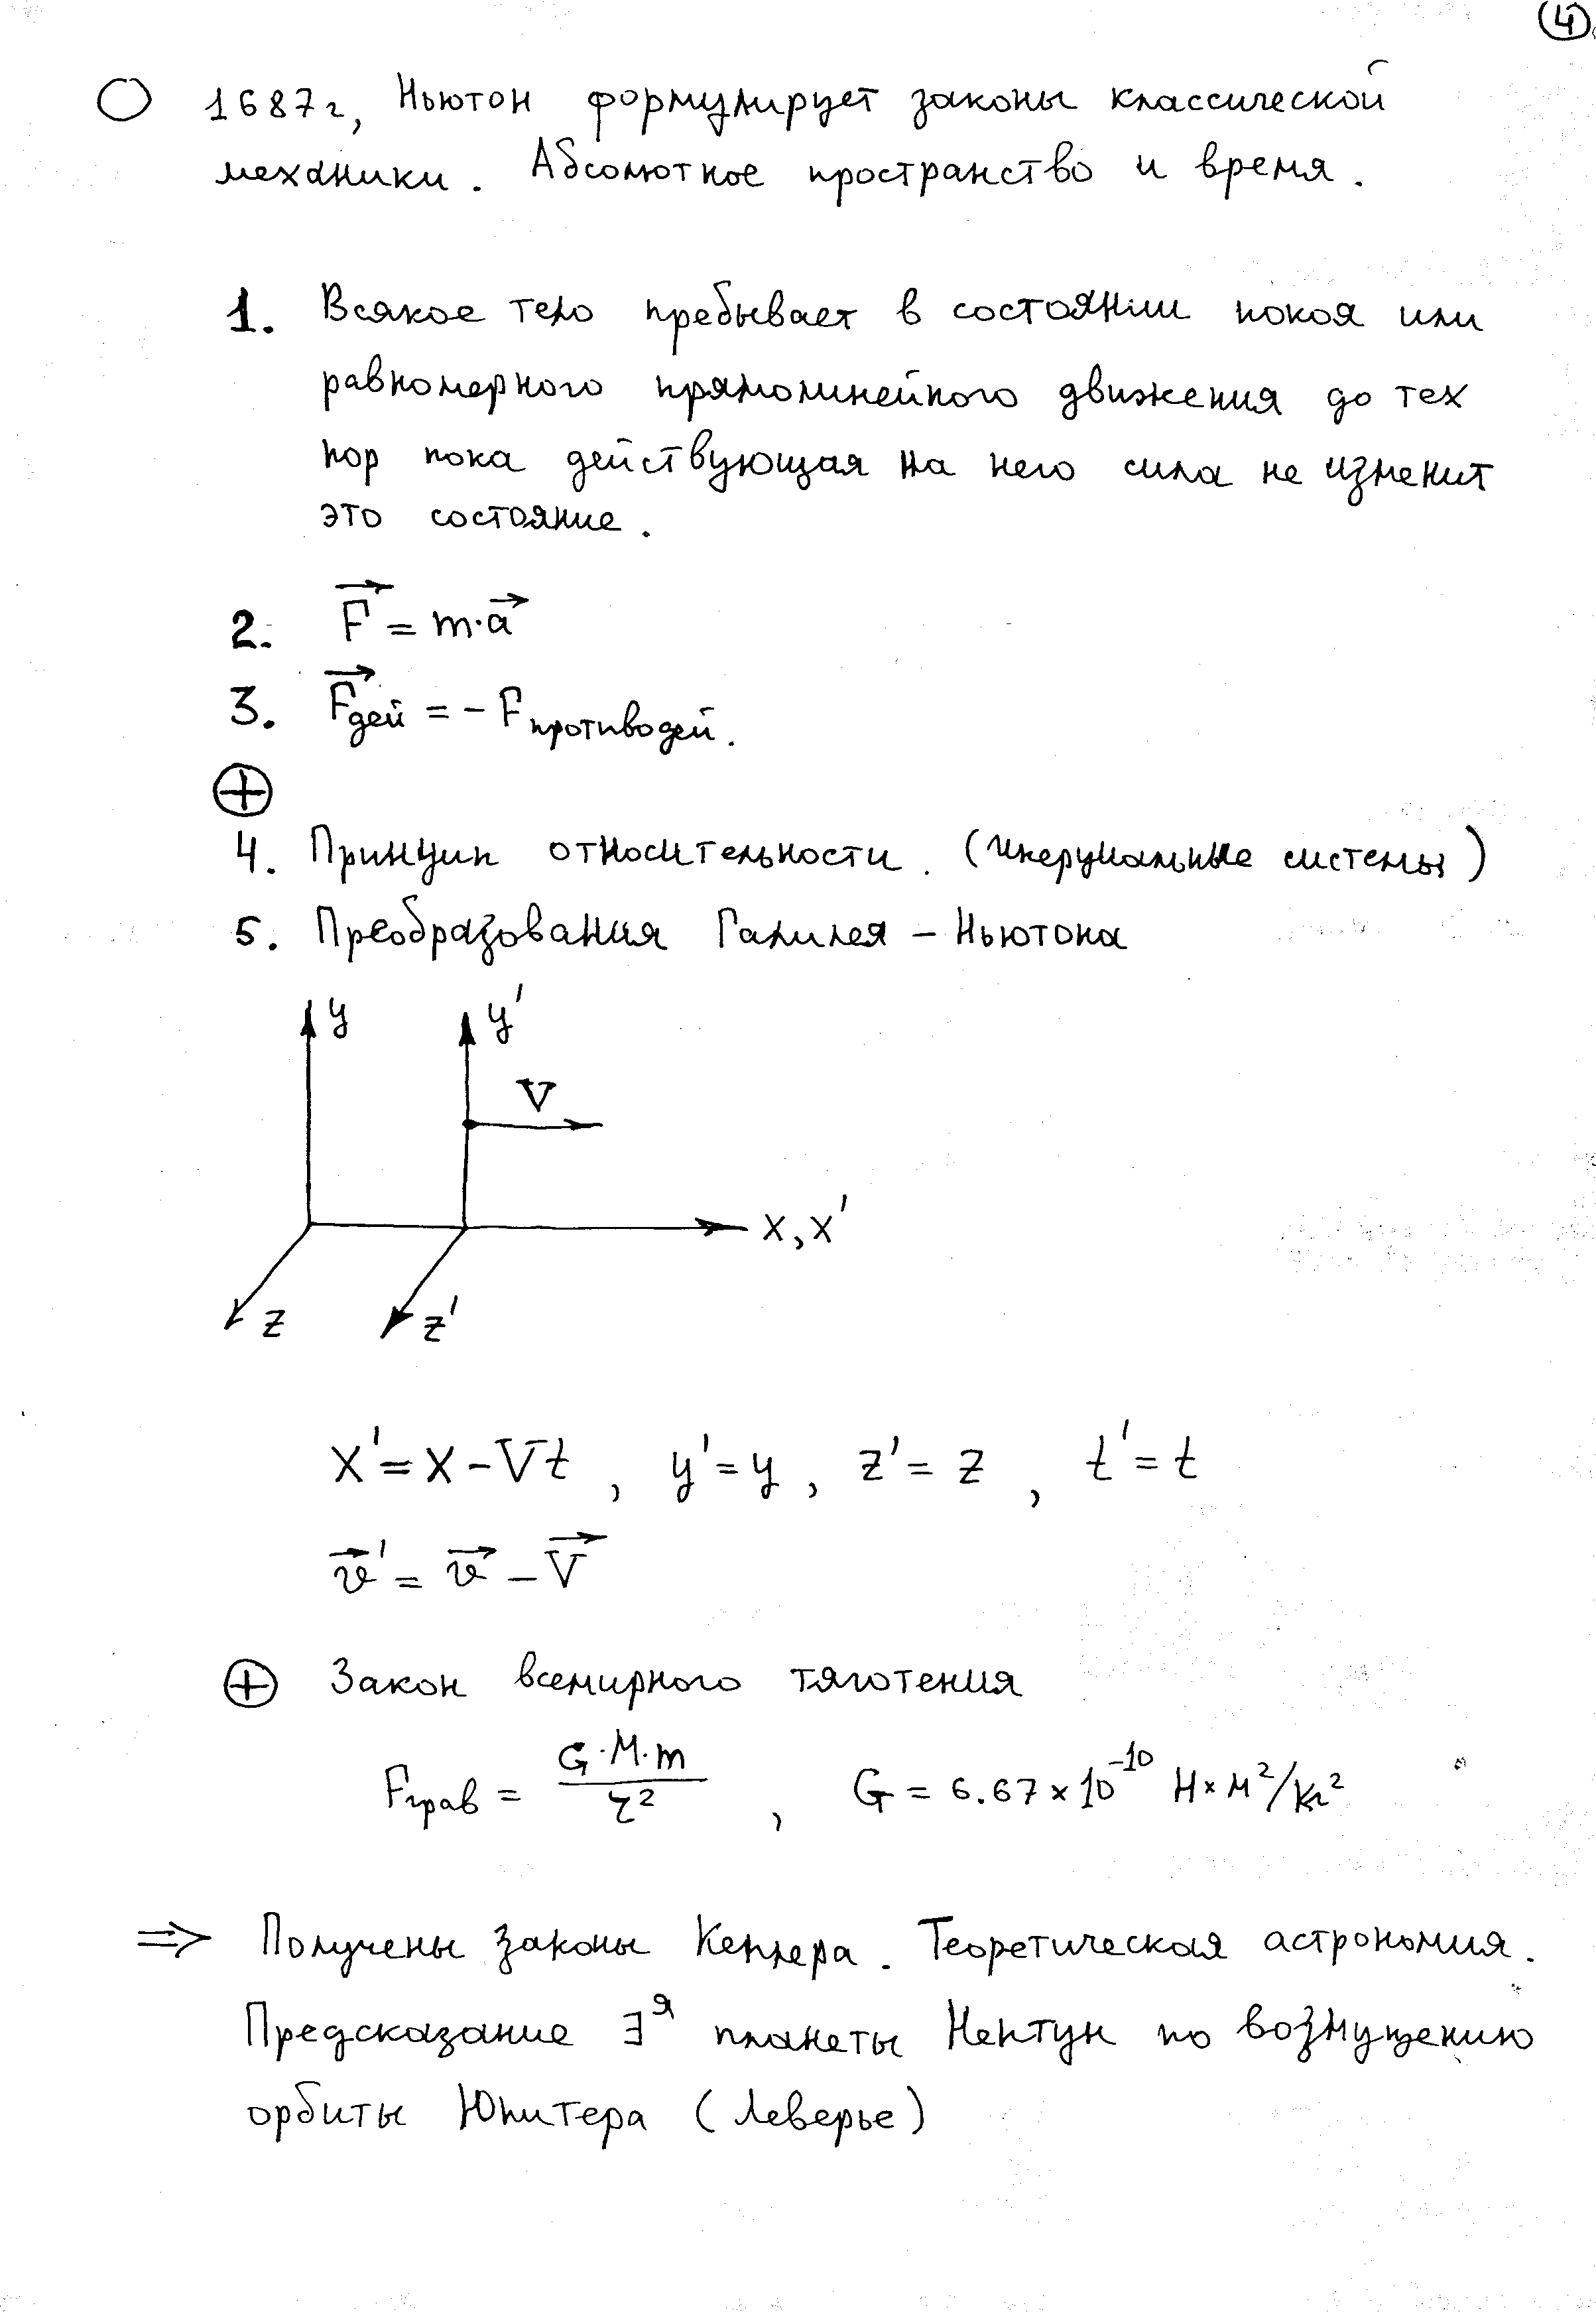 4
1687г, Ньютон формулирует законы классической
механики. Абсолютное пространство и время.
1. Всякое тело пребывает в состоянии покоя или
равномерного прямолинейного движения до тех
пор пока действующая на него сила не изменит
это состояние.
2. F⃗ = m·a⃗
3. F⃗дей = - Fпротиводей.
⊕
4. Принцип относительности. (инерциальные системы)
5. Преобразования Галилея – Ньютона
y y'
V
x, x'
z z'
x' = x - Vt, y' = y, z' = z, t' = t
v⃗' = v⃗ - V⃗
⊕ Закон всемирного тяготения
Fграв = G·M·m / r², G = 6.67 × 10⁻¹⁰ Н×м²/кг²
⇒ Получены законы Кеплера. Теоретическая астрономия.
Предсказание ∃ᵃя планеты Нептун по возмущению
орбиты Юпитера (Леверье)